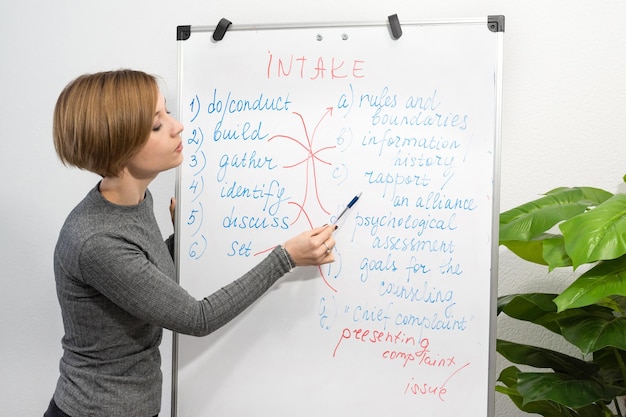 INTAKE
1) do/conduct
2) build
3) gather
4) identify
5) discuss
6) set
a) rules and
boundaries
b) information
history
c) rapport
an alliance
psychological
assessment
goals for the
counseling
"chief complaint"
presenting
complaint
issue